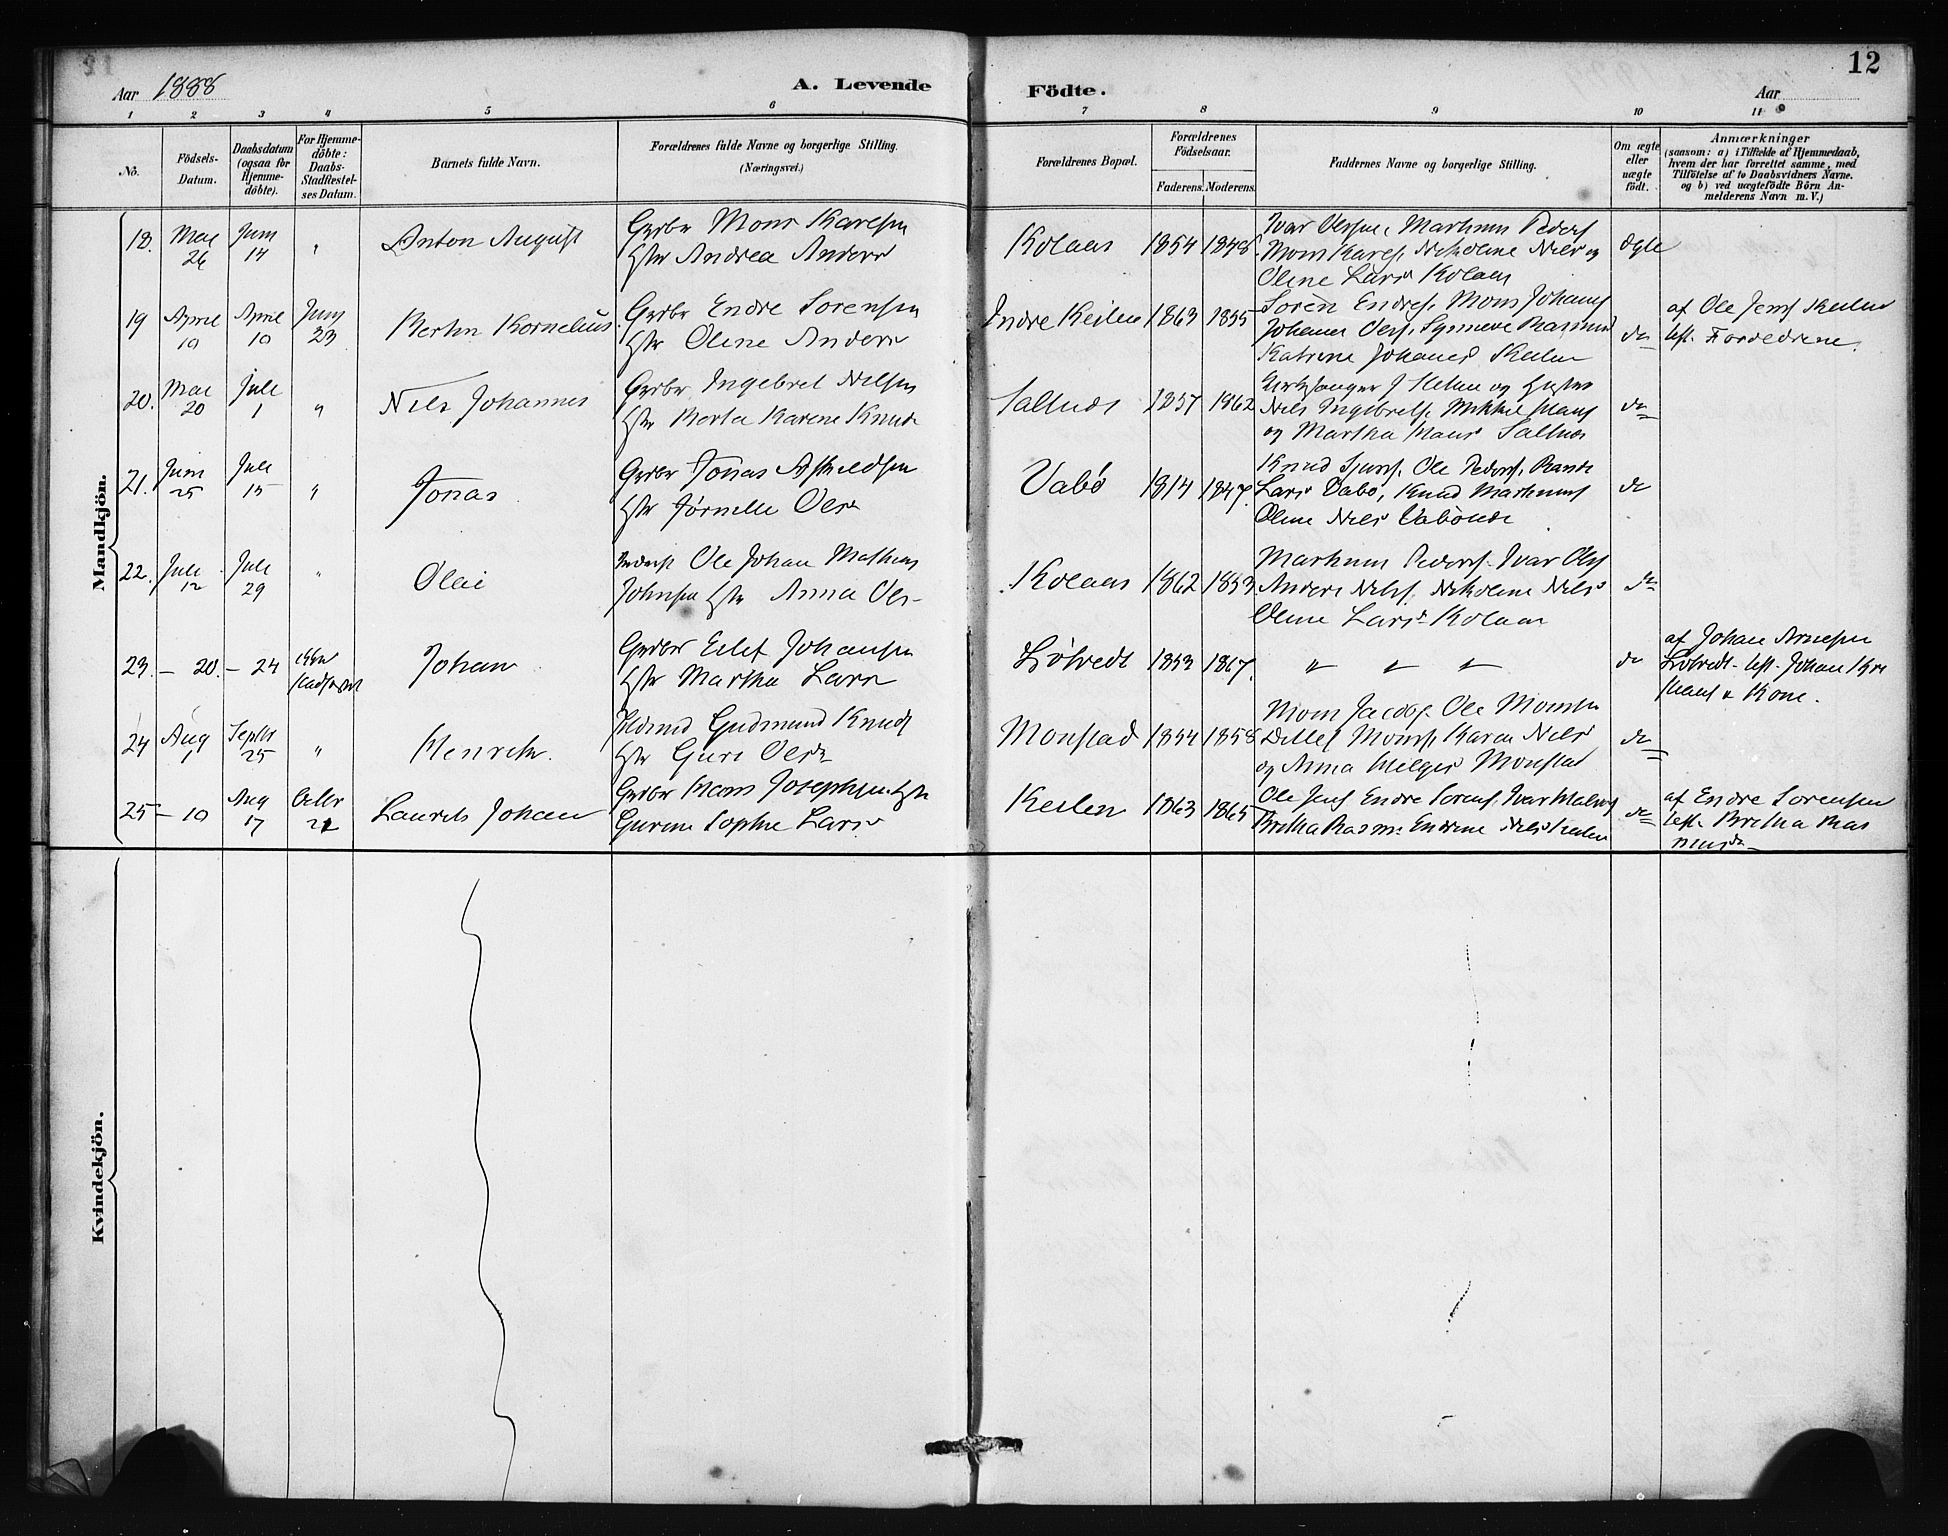 12
Aar 1888
A. Levende
Födte.
Aar
1 2 3 4 5 6 7 8 9 10 11
No.
Födsels-
Datum.
Daabsdatum
(ogsaa for
Hjemme-
döbte).
For Hjemme-
döbte:
Daabs-
Stadfæstel-
ses Datum.
Barnets fulde Navn.
Forældrenes fulde Navne og borgerlige Stilling.
(Næringsvei.)
Forældrenes Bopæl.
Forældrenes
Födselsaar.
Faderens. Moderens.
Faddernes Navne og borgerlige Stilling.
Om ægte
eller
uægte
födt.
Anmærkninger
(saasom: a) i Tilfælde af Hjemmedaab,
hvem der har forrettet samme, med
Tilföielse af to Daabsvidners Navne.
og b) ved uægtefödte Börn An-
melderens Navn m. V.)
Mandkjön.
18. Mai 26 Juni 14 " Anton August
Grdbr Mons Karlsen
Hstr Andrea Anders
Kolaas 1854 1848
Ivar Olsen, Markus Peders
Mons Karls, Nikoline Niels og
Oline Lars Kolaas
ægte
19 April 10 April 10 Juny 23 Bertin Kornelius
Grdbr Endre Sorensen
Hstr Oline Anders
Indre Keilen 1863 1855
Soren Endres, Mons Johans
Johanes Oles, Synneve Rasmus
Katrine Johanes Keilen
do
af Ole Jens Keilen
test. Forældrene.
20. Mai 20 Juli 1 " Niels Johannes
Grdbr Ingebret Nilsen
Hstr Marta Karene Knuds
Saltnes 1857 1862
Kirkesanger J og Hustru
Niels Ingebrets, Mikkel Hans
og Martha Hans Saltnes
do
21. Juni 25 Juli 15 " Jonas
Grdbr Jonas
Hstr Jørnelle Ols
Vabö 1814 1847.
Knud Ole Peders,
Lars Vabö, Knud Markus
Oline Niels
do
22. Juli 12 Juli 29 " Olai
Ole Johan Mathias
Johnsen Hstr Anna Ols
Kolaas 1862 1853
Markus Peders. Ivar Ols
Anders Niels, Nikoline Niels
Oline Lars Kolaas
do
23. – 20. – 24 Johan
Grdbr Eilef Johansen
Hstr Martha Lars
1853 1867.
" " "
do
af Johan Arnesen
test. Johan
Hans & Kone.
24 Aug 1 Septbr 25 " Henrik.
Gudmund Knuds
Hstr Guri Ols
Monstad 1854 1858
Mons Jacobs Ole Monsen
Detlef Mons, Karen Niels
og Anna Helges Monstad
do
25 – 10 Aug 17 Octbr 21 Laurits Johan
Grdbr Hans Josephsen Hstr
Gurine Sophie Lars
Keilen 1863 1865
Ole Jens Endre Sorens, Ivar
Britha Rasm. Endrine Niels Keilen
do
af Endre Sorensen
test. Britha Ras
musd
Kvindekjön.